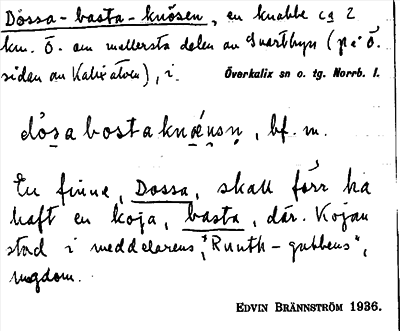 Dossa-basta-knösen, en knabbe ca 2
km. Ö. om mellersta delen av Svartbyn (på Ö.
sidan av Kalixälven), i. Överkalix sn o. tg. Norrb. l.
dȯsa bosta knǿnsn, bf. m.
En finne, Dossa, skall förr ha
haft en koja, basta, där. Kojan
stod i meddelarens, "Ruuth-gubbens",
ungdom.
EDVIN BRÄNNSTRÖM 1936.